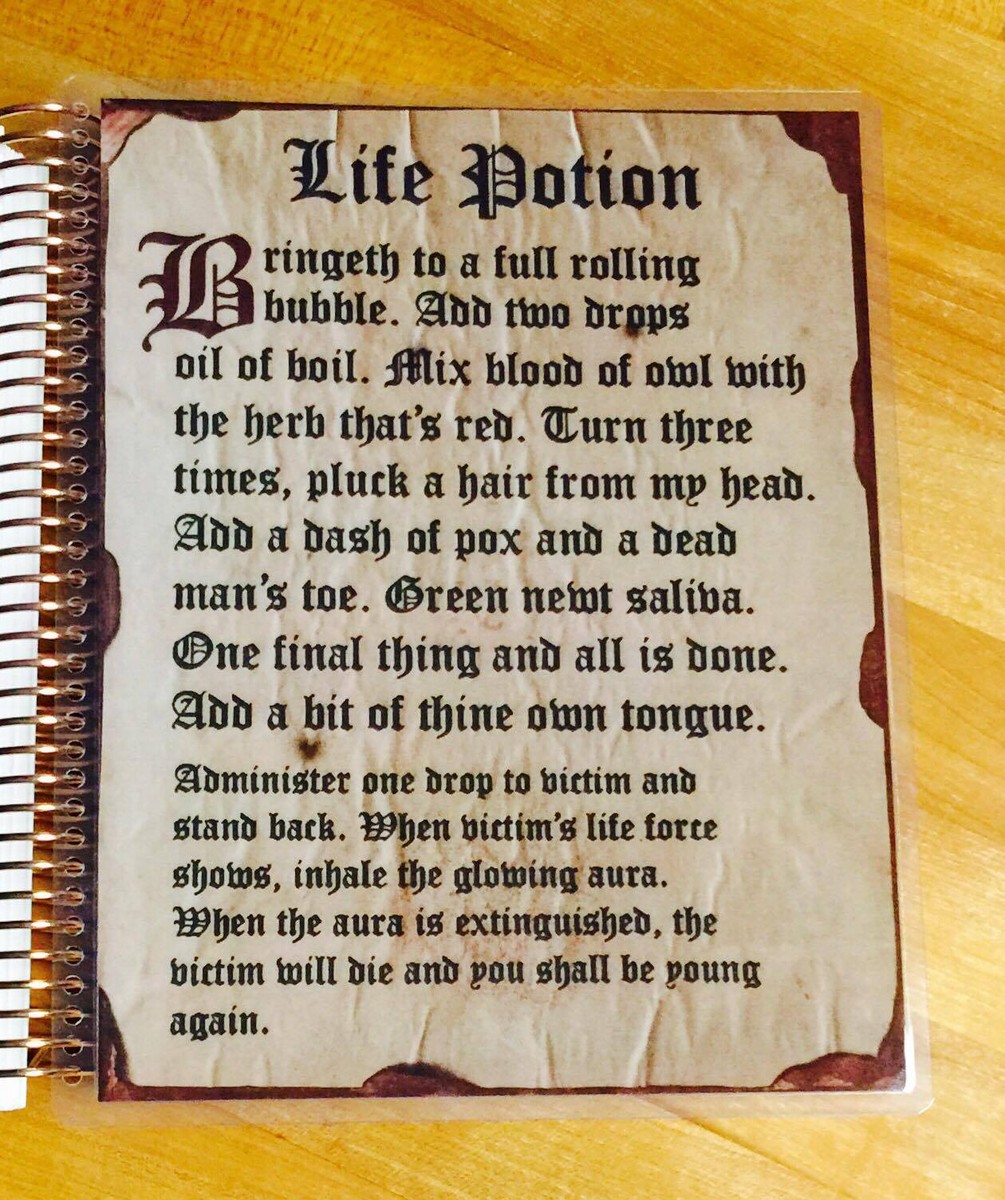 Life Potion
Bringeth to a full rolling
bubble. Add two drops
oil of boil. Mix blood of owl with
the herb that's red. Turn three
times, pluck a hair from my head.
Add a dash of pox and a dead
man's toe. Green newt saliva.
One final thing and all is done.
Add a bit of thine own tongue.
Administer one drop to victim and
stand back. When victim's life force
shows, inhale the glowing aura.
When the aura is extinguished, the
victim will die and you shall be young
again.